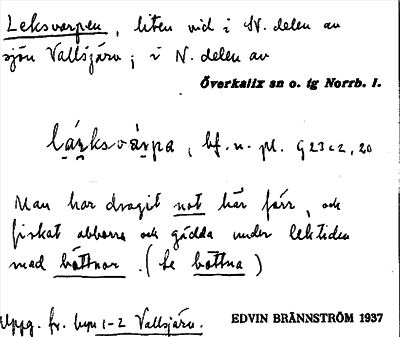 Leksvarpen, liten vid i N. delen av
sjön Vallsjärv; i N. delen av
Överkalix sn o. tg Norrb. l.
lärksvarpa, bf. n. pl. G 23 c 2, 20
Man har dragit not här förr, och
fiskat abborre och gädda under lektiden
med båttnor. (be båttna)
Uppg. fr. byn 1-2 Vallsjärv.
EDVIN BRÄNNSTRÖM 1937